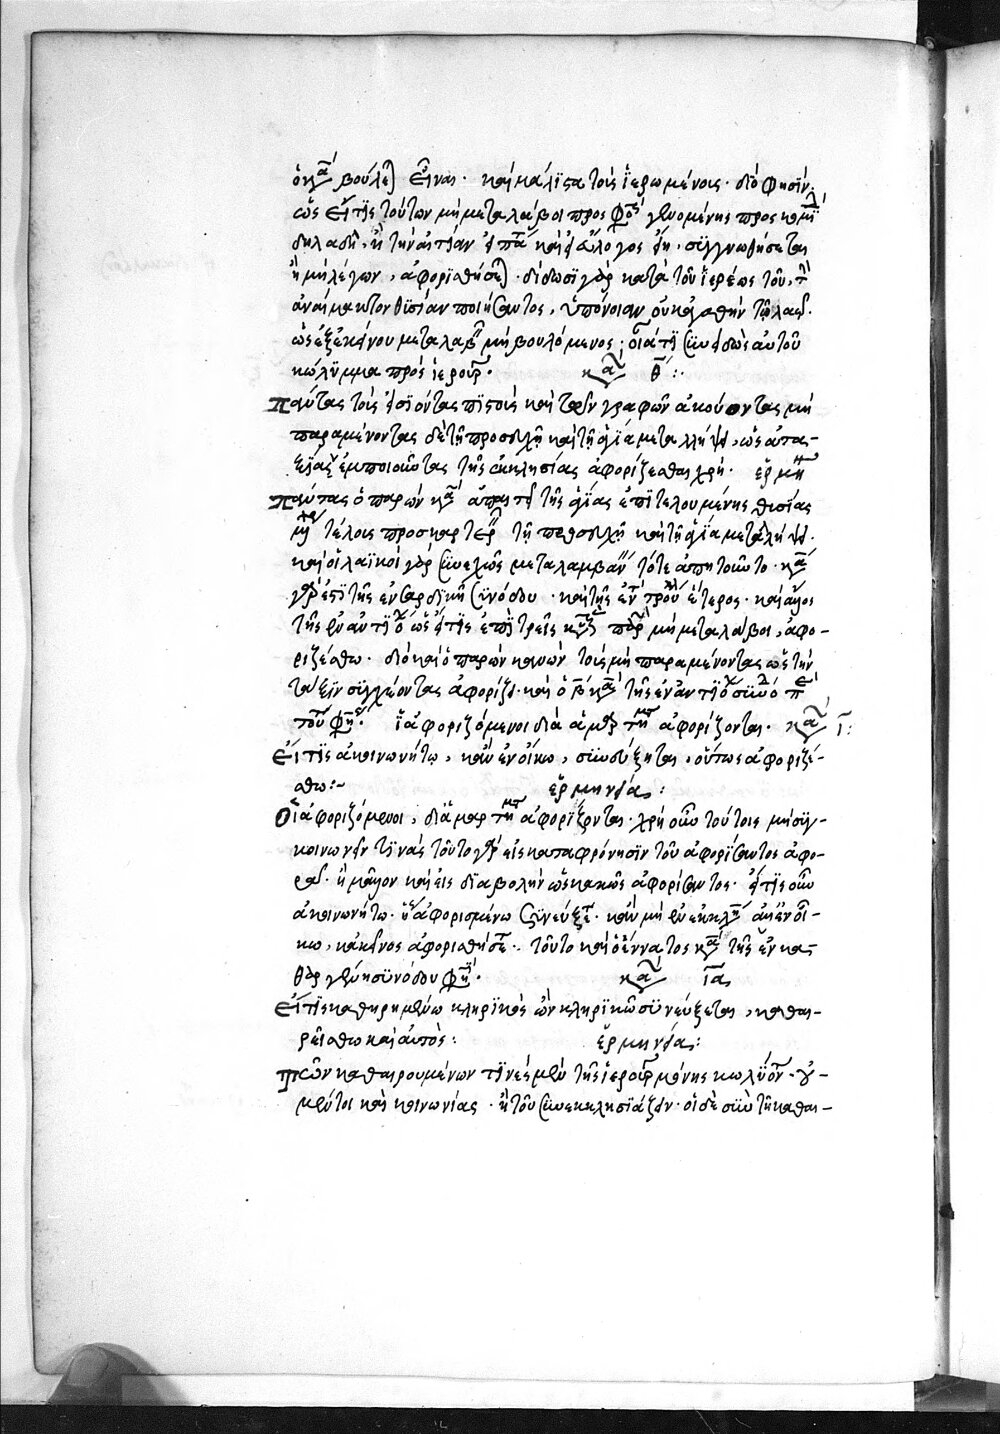 ὁ κανὼν βούλεται εἶναι· καὶ μάλιστα τοὺς ἱερωμένους· διό φησιν
ὡς εἴ τις τούτων μὴ μεταλάβοι προσφορᾶς γενομένης προς
δηλαδὴ, ἢ τὴν αἰτίαν εἰπάτω καὶ εἰ εὔλογος εἴη· συγγνωσθήσεται
ἢ μὴ λέγων, ἀφορισθήσεται· δίδωσι γὰρ κατὰ τοῦ ἱερέως τοῦ τὴν
ἀναίμακτον θυσίαν ποιήσαντος, ὑπόνοιαν οὐκ ἀγαθὴν τῷ λαῷ·
ὡς ἐξ ἐκείνου μεταλαβεῖν μὴ βουλόμενος· οἷα τι συνειδὼς αὐτοῦ
κώλυμμα πρὸς ἱερουργίαν· κανὼν θ:·
Πάντας τοὺς εἰσιόντας πιστοὺς καὶ τῶν γραφῶν ἀκούοντας μὴ
παραμένοντας δὲ τῇ προσευχῇ καὶ τῇ ἁγία μεταλλήψει, ὡς ἀτα-
ξίας ἐμποιοῦντας τῆς ἐκκλησίας ἀφορίζεσθαι χρή· ἑρμη
Πάντας ὁ παρὼν κανὼν ἀπαιτεῖ τῆς ἁγίας ἐπιτελουμένης θυσίας
μέχρι τέλους προσκαρτερεῖν τῇ προσευχῇ καὶ τῇ ἁγία μεταλήψει·
καὶ οἱ λαϊκοὶ γὰρ συνεχῶς μεταλαμβάνειν τότε ἀπητοῦντο· κανὼν
γάρ ἐστι τῆς ἐν σαρδικῇ συνόδου· καὶ τῆς ἐν τρούλλῳ ἕτερος· καὶ ἄλλος
τῆς ἐν ἀντιοχείᾳ ὡς εἴ τις ἐπὶ τρεῖς κυριακὰς παρὼν μὴ μεταλάβοι, ἀφο-
ριζέσθω· διὸ καὶ ὁ παρὼν κανὼν τοὺς μὴ παραμένοντας ὡς τὴν
τάξιν συγχέοντας ἀφορίζει· καὶ ὁ β κανὼν τῆς ἐν ἀντιοχείᾳ συνόδου
τοῦ φησίν· οἱ ἀφοριζόμενοι διὰ ἁμαρτήματα ἀφορίζονται· κανὼν ι:
Εἴ τις ἀκοινωνήτῳ, κἂν ἐν οἴκω, συνεύξηται, οὗτος ἀφοριζέ-
σθω:~ ἑρμηνεία:
Οἱ ἀφοριζόμενοι, διἁμαρτήματα ἀφορίζονται· χρὴ οὖν τούτοις μὴ συγ-
κοινωνεῖν τινάς τοῦτο γὰρ εἰς καταφρόνησιν τοῦ ἀφορίσαντος ἀφο-
ρᾷ· ἢ μᾶλλον καὶ εἰς διαβολὴν ὡς κακῶς ἀφορίσαντος· εἴ τις οὖν
ἀκοινωνήτω· ἢ ἀφορισμένω συνεύξεται· κἂν μὴ ἐν ἐκκλησίᾳ ἀλλ' ἐν οἴ-
κω, κἀκεῖνος ἀφορισθήσεται· τοῦτο καὶ ὁ ἔννατος κανὼν τῆς ἐν κα-
θαγένη συνόδου φησί· κανὼν ια
Εἴ τις καθηρημένω κληρικὸς ὢν κληρικῶ συνεύξεται, καθαι-
ρείσθω καὶ αὐτός: ἑρμηνεία:
Τῶν καθαιρουμένων τινὲς μὲν τῆς ἱερουργίας μόνης κωλύονται· οὐ
μέντοι καὶ κοινωνίας· ἢ τοῦ συνεκκλησιάζειν· οἱ δὲ σὺν τῇ καθαι-